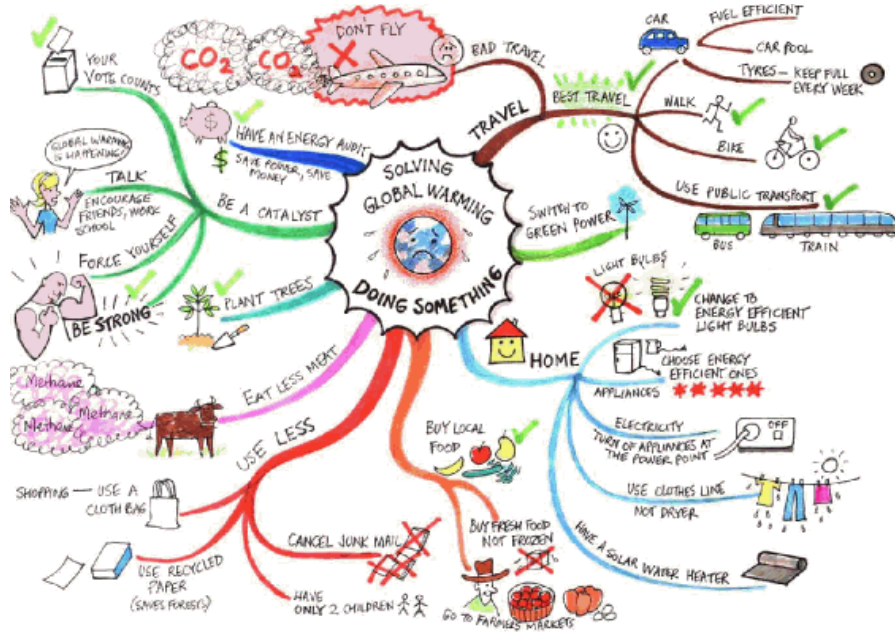 SOLVING
GLOBAL WARMING
DOING SOMETHING
TRAVEL
BAD TRAVEL
DON'T FLY
CO2
CO2
BEST TRAVEL
CAR
FUEL EFFICIENT
CAR POOL
TYRES — KEEP FULL
EVERY WEEK
WALK
BIKE
USE PUBLIC TRANSPORT
BUS
TRAIN
SWITCH TO
GREEN POWER
HOME
LIGHT BULBS
CHANGE TO
ENERGY EFFICIENT
LIGHT BULBS
APPLIANCES
CHOOSE ENERGY
EFFICIENT ONES
ELECTRICITY
TURN OF APPLIANCES AT
THE POWER POINT
OFF
USE CLOTHES LINE
NOT DRYER
HAVE A SOLAR WATER HEATER
BUY LOCAL
FOOD
BUY FRESH FOOD
NOT FROZEN
GO TO FARMERS MARKETS
USE LESS
SHOPPING — USE A
CLOTH BAG
USE RECYCLED
PAPER
(SAVES FORESTS)
CANCEL JUNK MAIL
HAVE
ONLY 2 CHILDREN
EAT LESS MEAT
Methane
Methane
Methane
PLANT TREES
BE A CATALYST
YOUR
VOTE COUNTS
TALK
ENCOURAGE
FRIENDS, WORK
SCHOOL
GLOBAL WARMING
IS HAPPENING!
FORCE YOURSELF
BE STRONG
HAVE AN ENERGY AUDIT
SAVE POWER, SAVE
MONEY
$
$